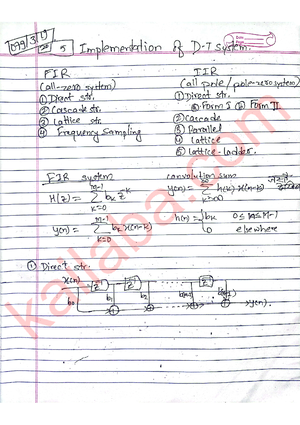 099/3/11
Implementation of D-T system.
FIR
(all-zero system)
① Direct str.
② Cascade str.
③ Lattice str.
④ Frequency Sampling
IIR
(all pole/pole-zero system)
① Direct str.
① Form I ② Form II
② Cascade
③ Parallel
④ Lattice
⑤ Lattice-ladder.
FIR system
H(z) = Σ bk z^-k
m-1
k=0
y(n) = Σ bk x(n-k)
m-1
k=0
convolution sum
y(n) = Σ h(k) x(n-k)
k=0
h(n) = bk 0≤n≤M-1
0 elsewhere
① Direct str.
x(n)
z^-1
z^-1
z^-1
b0
b1
b2
y(n).
kailaba.com